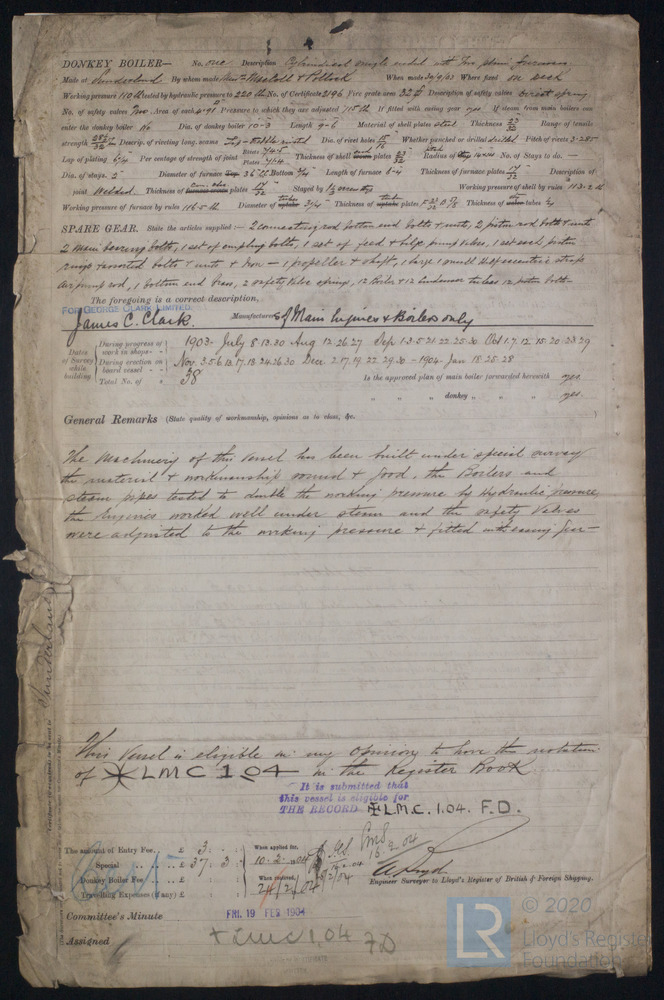 DONKEY BOILER— No. One Description Cylindrical single ended with two plain furnaces
Made at Sunderland By whom made Mess Macloll & Pollock When made 30/9/03 Where fixed on deck
Working pressure 110 lb tested by hydraulic pressure to 220 lb No. of Certificate 2196 Fire grate area 32 Description of safety valves Direct spring
No. of safety valves Two Area of each 4.91 Pressure to which they are adjusted 115 lb If fitted with easing gear yes If steam from main boilers can
enter the donkey boiler No Dia. of donkey boiler 10-3 Length 9-6 Material of shell plates steel Thickness 23/32 Range of tensile
strength Descrip. of riveting long. seams Lap Treble riveted Dia. of rivet holes 15/16 Whether punched or drilled drilled Pitch of rivets 3.285
Lap of plating 6 3/4 Per centage of strength of joint Rivets 74.5 Plates 71.4 Thickness of plates 23/32 Radius of No. of Stays to do. —
Dia. of stays. 2" Diameter of furnace Top 36" Bottom Length of furnace 6-4 Thickness of furnace plates 17/32 Description of
joint Welded Thickness of plates 17/32 Stayed by Working pressure of shell by rules 113.2 lb
Working pressure of furnace by rules 116.5 lb Diameter of 3 1/4 Thickness of plates Thickness of tubes
SPARE GEAR. State the articles supplied:— 2 connecting rod bottom end bolts & nuts, 2 piston rod bolts & nuts
2 Main bearing bolts, 1 set of coupling bolts, 1 set of feed & bilge pump valves, 1 set each piston
rings assorted bolts & nuts & Iron — 1 propeller & shaft, 1 large 1 small eccentric strap
Air pump rod, 1 bottom end brass, 2 safety valve springs, 12 Boiler & 12 Condenser tubes 12 bolts
The foregoing is a correct description,
FOR GEORGE CLARK LIMITED.
James C. Clark. Manufacturers of Main Engines & Boilers only
Dates of Survey while building
During progress of work in shops - - 1903 - July 8.13.30 Aug 12 26 27 Sep 1.3.5.21.22.25.30 Oct 1.7.12 15 20 23 29
During erection on board vessel - - Nov 3.5.6.13.17.18.24.26.30 Dec 2.17.19.22.29.30 - 1904 - Jan 18.25.28
Total No. of 38 Is the approved plan of main boiler forwarded herewith yes
" " " donkey " " " yes
General Remarks (State quality of workmanship, opinions as to class, &c.
The Machinery of this Vessel has been built under special survey
the material & workmanship sound & good, the Boilers and
steam pipes tested to double the working pressure by Hydraulic pressure,
the Engines worked well under steam and the safety valves
were adjusted to the working pressure & fitted with easing gear —
Sunderland
This Vessel is eligible in my opinion to have the notation
of ✠ LMC 1.04 in the Register Book
It is submitted that
this vessel is eligible for
THE RECORD ✠ L.M.C. 1.04. F.D.
The amount of Entry Fee.. £ 3 : : When applied for,
Special .. .. £ 37 : 3 : 10.2.04
Donkey Boiler Fee .. .. £ : : When received,
Travelling Expenses (if any) £ : : 24/2/04
Engineer Surveyor to Lloyd's Register of British & Foreign Shipping.
Committee's Minute FRI. 19 FEB 1904
Assigned + LMC 1,04 FD
LR © 2020
Lloyd's Register
Foundation